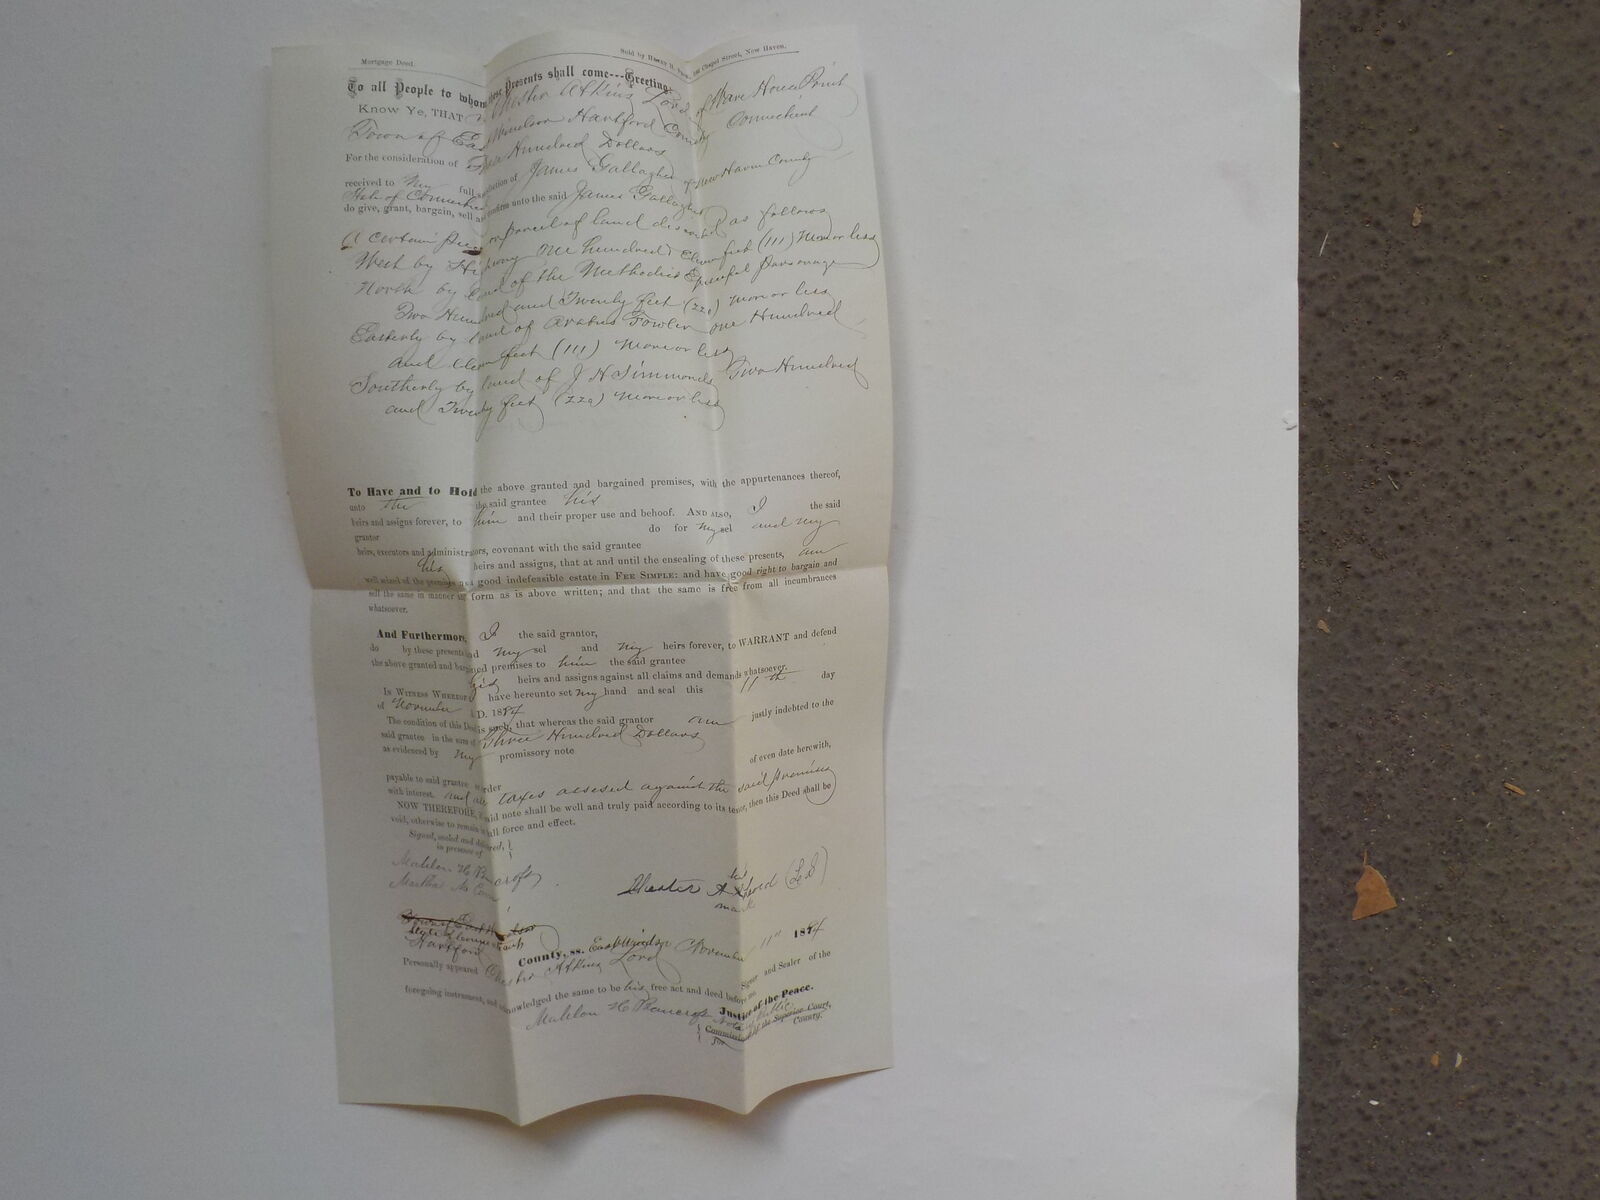 Mortgage Deed. Sold by Chapel Street, New Haven.
To all People to whom these Presents shall come---Greeting:
Know Ye, THAT Chester Atkins Lord of Ware House Point
Town of East Windsor Hartford County Connecticut
For the consideration of Three Hundred Dollars
received to my full satisfaction of James Gallagher of New Haven County
State of Connecticut
do give, grant, bargain, sell and confirm unto the said James Gallagher
A certain piece or parcel of land described as follows
West by Highway one hundred Eleven feet (111) More or less
North by land of the Methodist Episcopal Parsonage
Two Hundred and Twenty feet (220) more or less
Easterly by land of Fowler one Hundred
and eleven feet (111) More or less
Southerly by land of J H Simmonds Two Hundred
and Twenty feet (220) More or less
To Have and to Hold the above granted and bargained premises, with the appurtenances thereof,
unto the the said grantee his
heirs and assigns forever, to him and their proper use and behoof. AND ALSO, I the said
grantor do for my sel and my
heirs, executors and administrators, covenant with the said grantee
his heirs and assigns, that at and until the ensealing of these presents, am
well seized of the premises as a good indefeasible estate in FEE SIMPLE: and have good right to bargain and
sell the same in manner and form as is above written; and that the same is free from all incumbrances
whatsoever.
And Furthermore, I the said grantor,
do by these presents bind my sel and my heirs forever, to WARRANT and defend
the above granted and bargained premises to him the said grantee
his heirs and assigns against all claims and demands whatsoever.
In Witness Whereof I have hereunto set my hand and seal this 11th day
of November A.D. 1874
The condition of this Deed is such, that whereas the said grantor am justly indebted to the
said grantee in the sum of Three Hundred Dollars
as evidenced by my promissory note of even date herewith,
payable to said grantee or order
with interest. and all taxes assesed against the said premises
NOW THEREFORE, if said note shall be well and truly paid according to its tenor, then this Deed shall be
void, otherwise to remain in full force and effect.
Signed, sealed and delivered,
in presence of
Mahlon H Bancroft
Martha
his
Chester A X Lord (LS)
mark
State of Connecticut
Hartford County, ss. East Windsor November 11th 1874
Personally appeared Chester Atkins Lord Signer and Sealer of the
foregoing instrument, and acknowledged the same to be his free act and deed before me
Justice of the Peace.
Mahlon H Bancroft Notary Public
Commissioner of the Superior Court,
for County.